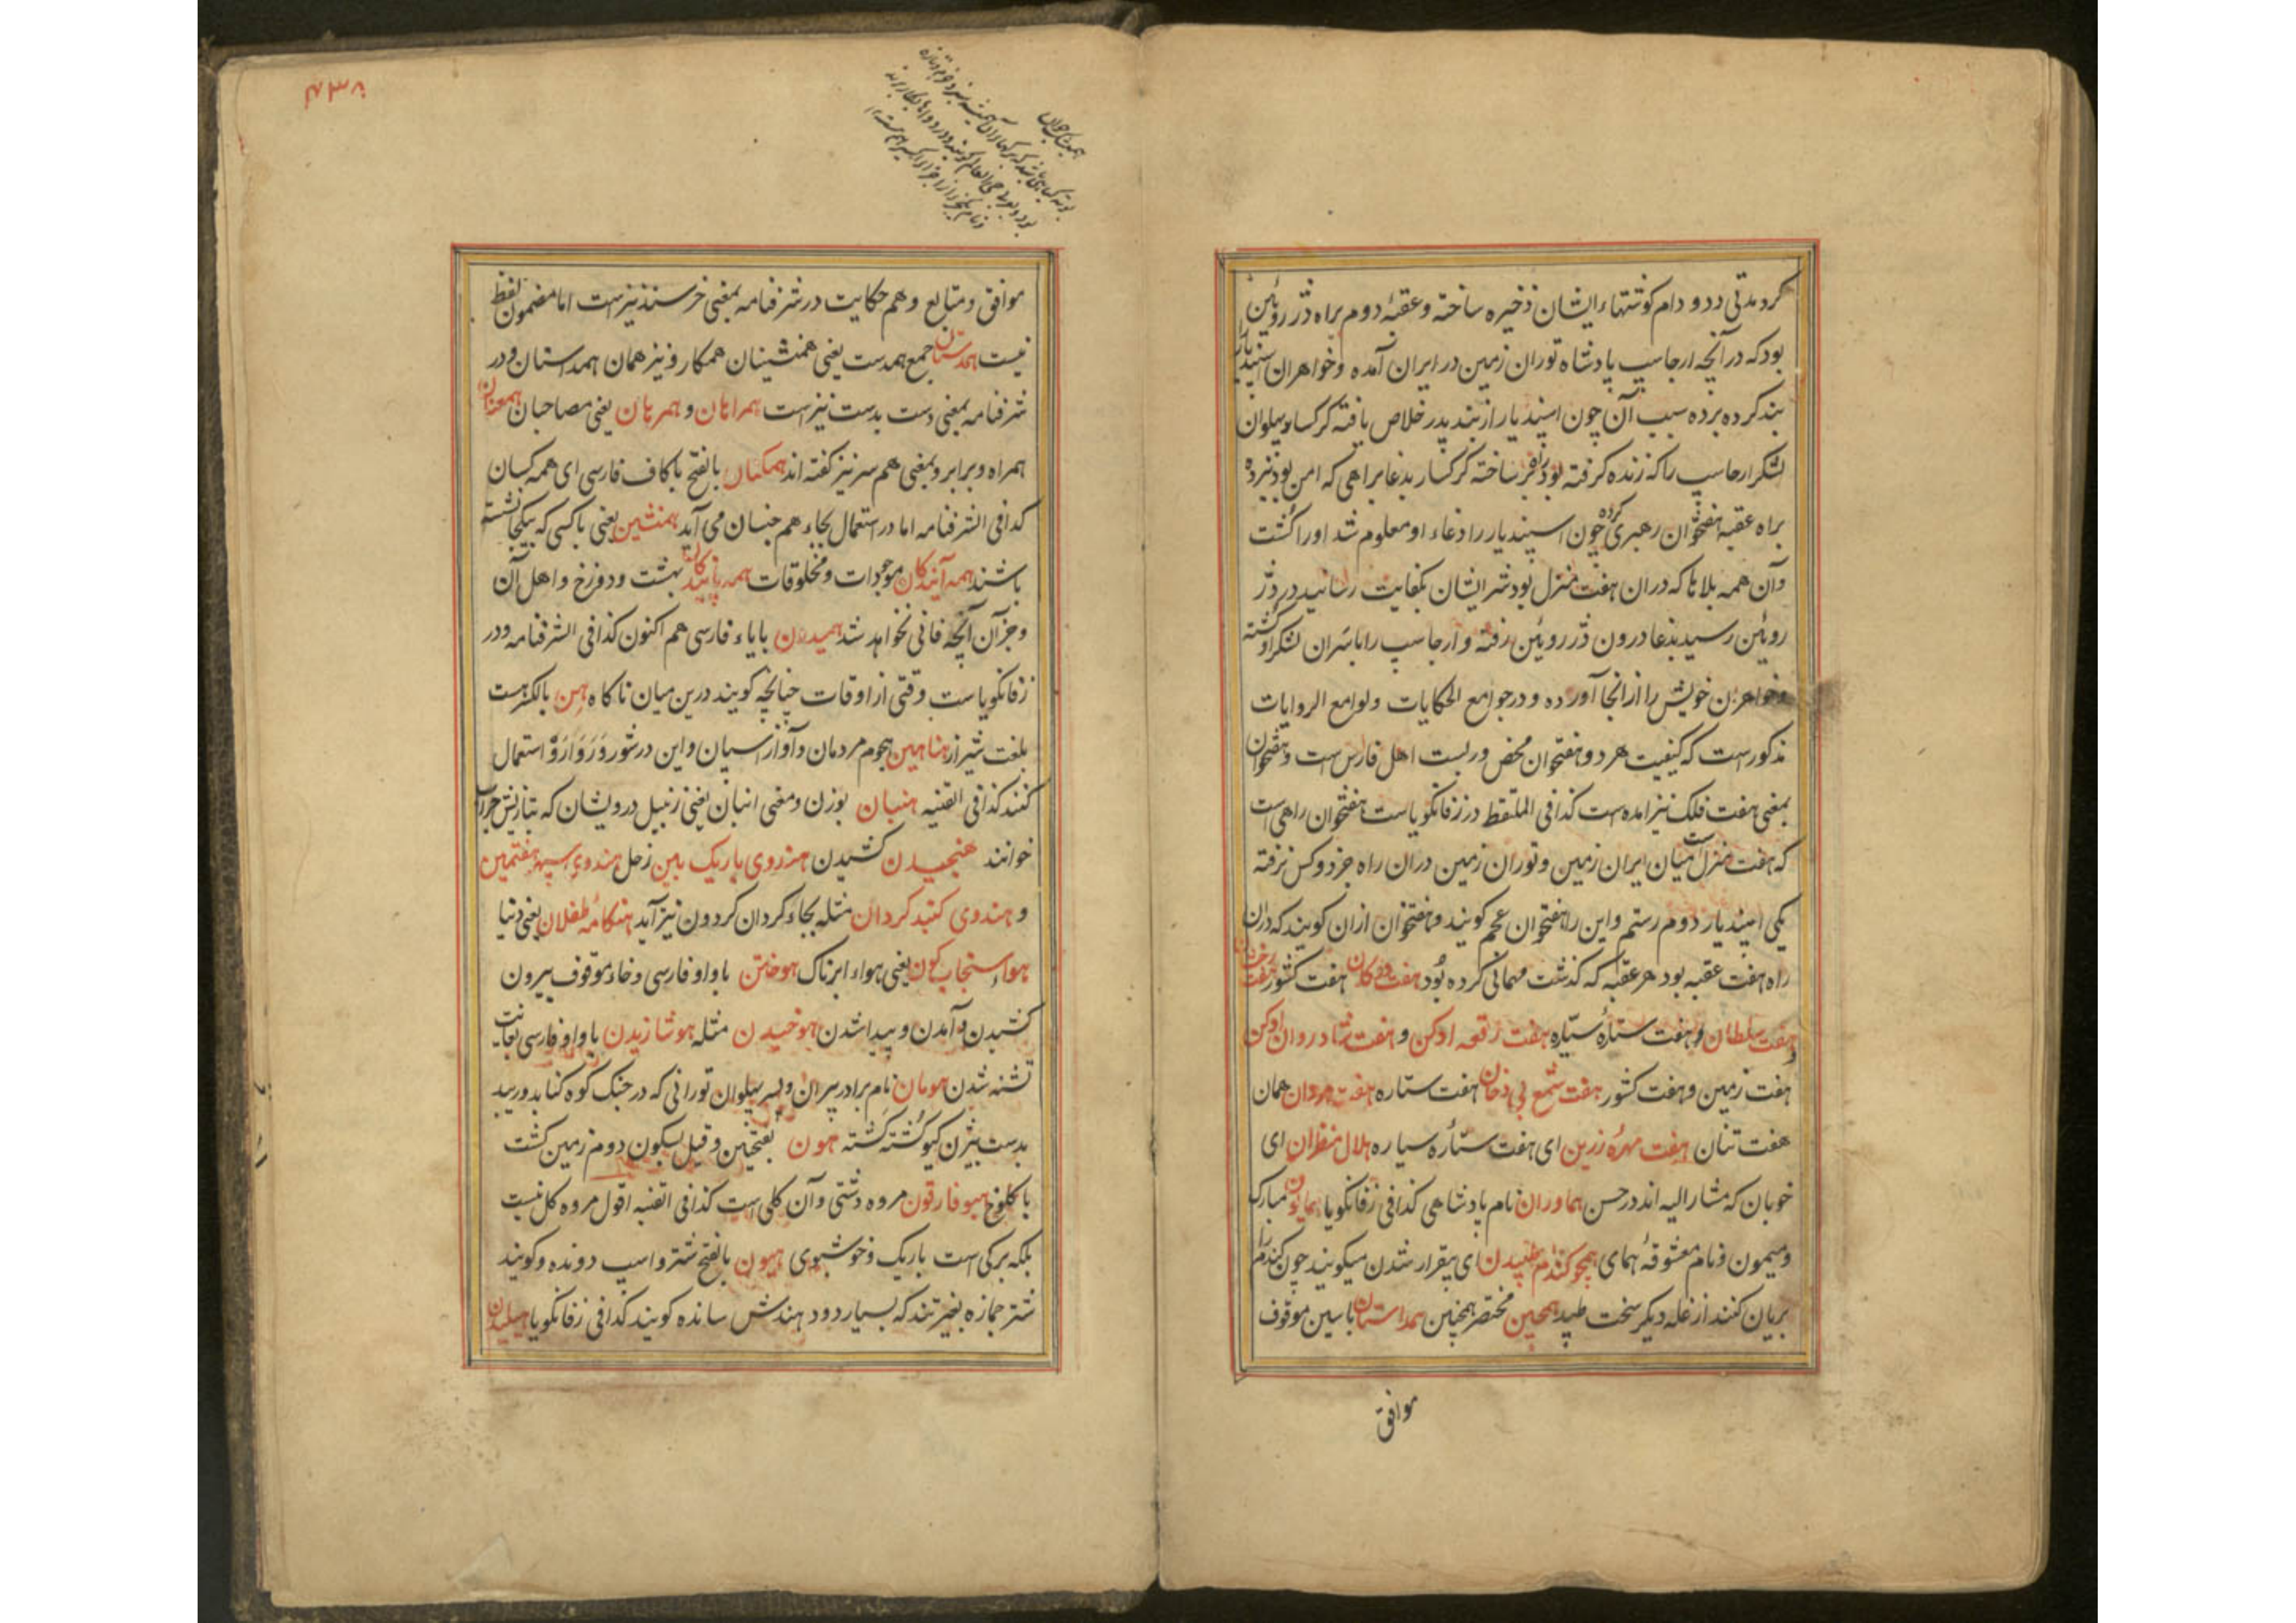 کرد مدتی دد و دام کوشتهاء ایشان ذخیره ساخته و عقبهٔ دوم براه دز رویٔین
بود که در آنچه ارجاسپ پادشاه توران زمین در ایران آمده و خواهران اسپندیار
بند کرده برده سبب آن چون اسپندیار از بند پدر خلاص یافته کرکسار پهلوان
لشکر ارجاسپ را که زنده کرفته بود راهبر ساخته کرکسار بدغا براهی که امن بود نبرده
براه عقبه هفتخوان رهبری کرده چون اسپندیار را دغاء او معلوم شد او را کشت
و آن همه بلاها که دران هفت منزل بود شر ایشان بکفایت رسانید در دز
رویٔین رسید بدغا درون دز رویٔین رفته و ارجاسپ را با سران لشکر او کشته
و خواهران خویش را از انجا آورده و در جوامع الحکایات و لوامع الروایات
مذکورست که کیفیت هر دو هفتخوان محض بربست اهل فارس ست و هفتخوان
بمعنی هفت فلک نیز امده ست کذا فی الملتقط در زفانکویاست هفتخوان راهی ست
که هفت منزل است میان ایران زمین و توران زمین دران راه جز دو کس نرفته
یکی اسپندیار دوم رستم و این را هفتخوان عجم کویند و هفتخوان ازان کویند که دران
راه هفت عقبه بود هر عقبه که کذشت مهمانی کرده بود هفت دوکان هفت کشور هفت رخشان
و هفت سلطان و هفت ستارهٔ سیّاره هفت رقعه ادکن و هفت شادروان ادکن
هفت زمین و هفت کشور هفت شمع بی دخان هفت ستاره هفت مردان همان
هفت تنان هفت مهرهٔ زرین ای هفت ستارهٔ سیاره هلال منظران ای
خوبان که مشار الیه اند در حسن هماوران نام پادشاهی کذا فی زفانکویا همایون مبارک
و میمون و نام معشوقهٔ همای همچو کندم طپیدن ای بیقرار شدن میکویند چون کندم را
بریان کنند از غله دیکر سخت طپد همچین مختصر همچنین همداستان با سین موقوف
موافق
۴۳۸
موافق و متابع و هم حکایت در شرفنامه بمعنی خرسند نیزست اما مضمون لفظ
نیست همدستان جمع همدست یعنی همنشینان همکار و نیز همان همداستان و در
شرفنامه بمعنی دست بدست نیز است همراهان و همرهان یعنی مصاحبان همعنان
همراه و برابر و بمعنی هم سر نیز کفته اند همکنان بالفتح با کاف فارسی ای همه کسان
کذا فی الشرفنامه اما در استعمال بجاء هم جنسان می آید همنشین یعنی با کسی که یکجا نشسته
باشند همه آیندکان موجودات و مخلوقات همه پایندکان بهشت و دوزخ و اهل آن
و جز آن آنچه فانی نخواهد شد همیدون با یاء فارسی هم اکنون کذا فی الشرفنامه و در
زفانکویاست وقتی از اوقات چنانچه کویند درین میان ناکاه هن بالکسر هست
بلغت شیراز هناهین هجوم مردمان و آواز اسپان و این در شور و رو ارو استعمال
کنند کذا فی القنیه هنبان بوزن و معنی انبان یعنی زنبیل درویشان که بتازیش جراب
خوانند هنجیدن کشیدن هندوی باریک بین زحل هندوی سپهر هفتمین
و هندوی کنبد کردان مثله بجاء کردان کردون نیز آید هنکامهٔ طفلان یعنی دنیا
هواء سنجاب کون یعنی هواء ابرناک هوختن با واو فارسی و خاء موقوف بیرون
کشیدن و آمدن و پیدا شدن هوخیدن مثله هوشازیدن با واو فارسی بغایت
تشنه شدن هومان نام برادر پیران ویسه پهلوان تورانی که در جنک کوه کنابد
بدست بیژن کیو کشته کشته هون بفتحتین و قیل بسکون دوم زمین کشت
با کلوخ هیوفارقون مروه دشتی و آن کلی ست کذا فی القنیه اقول مروه کل نیست
بلکه برکی است باریک و خوشبوی هیون بالفتح شتر و اسپ دونده و کویند
شتر جمازه بغیر تند که بسیار دود هندش سانده کویند کذا فی زفانکویا